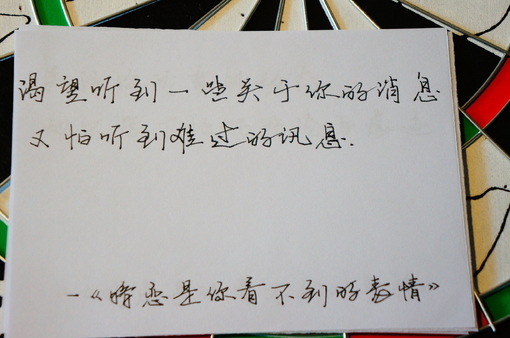 渴望听到一些关于你的消息
又怕听到难过的讯息.
—《暗恋是你看不到的表情》